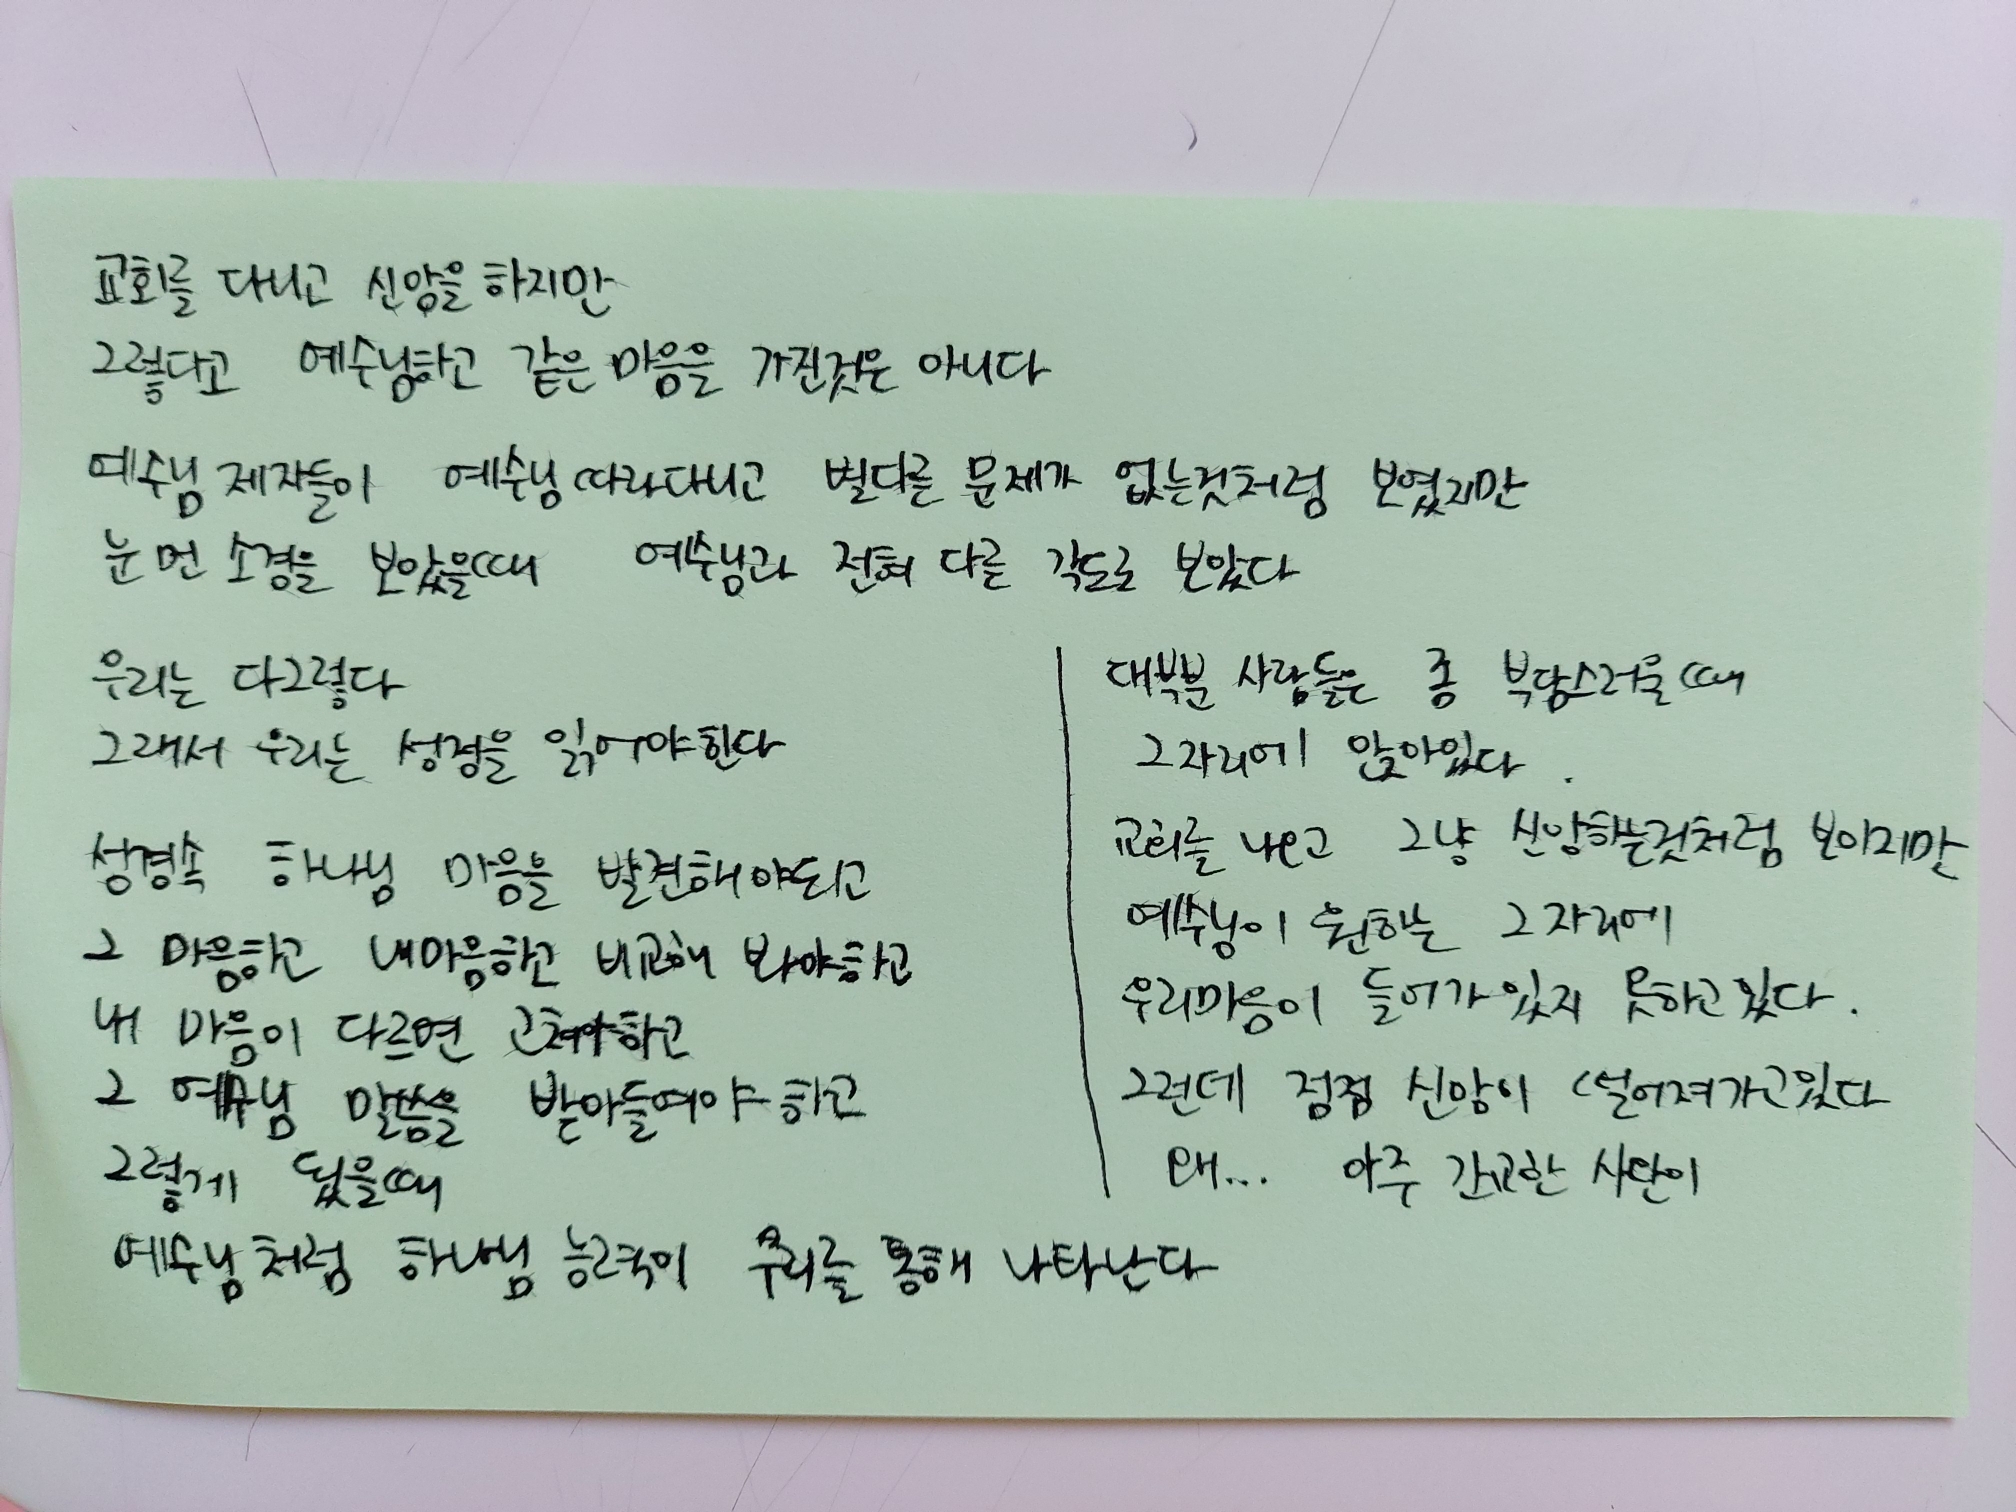 교회를 다니고 신앙을 하지만
그렇다고 예수님하고 같은 마음을 가진것은 아니다
예수님 제자들이 예수님 따라다니고 별다른 문제가 없는것처럼 보였지만
눈 먼 소경을 보았을때 예수님과 전혀 다른 각도로 보았다
우리는 다그렇다
그래서 우리는 성경을 읽어야한다
성경속 하나님 마음을 발견해야되고
그 마음하고 내마음하고 비교해 봐야하고
내 마음이 다르면 고쳐야하고
그 예수님 말씀을 받아들여야 하고
그렇게 됬을때
예수님처럼 하나님 능력이 우리를 통해 나타난다
대부분 사람들은 좀 부담스러울때
그자리에 앉아있다.
교회를 나오고 그냥 신앙하는것처럼 보이지만
예수님이 원하는 그자리에
우리마음이 들어가 있지 못하고있다.
그런데 점점 신앙이 떨어져가고있다
왜... 아주 간교한 사단이